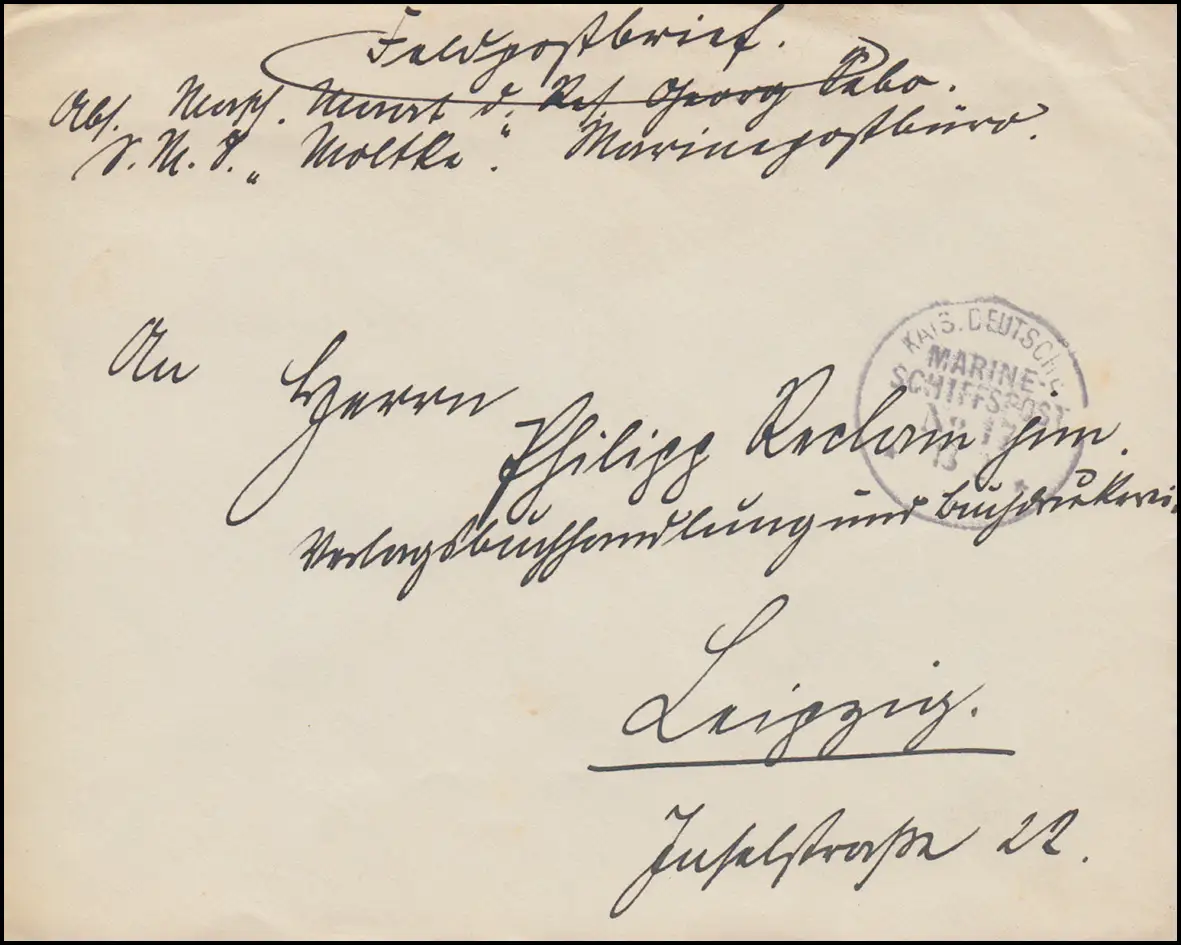 Feldpostbrief.
Abs. Masch. Maat d. Res. Georg Sabo.
S.M.S. „Moltke". Marinepostbüro.
KAIS. DEUTSCHE
MARINE-
SCHIFFSPOST
No 17
13
An Herrn
Philipp Reclam jun.
Verlagsbuchhandlung und Buchdruckerei.
Leipzig.
Inselstraße 22.